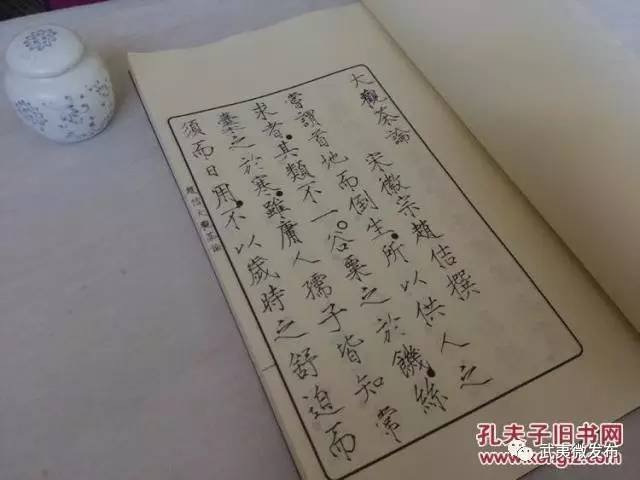 大觀茶論 宋徽宗趙佶撰
嘗謂首地而倒生、所以供人之
求者、其類不一。谷粟之於饑、絲
枲之於寒、雖庸人孺子皆知常
須而日用、不以歲時之舒迫而
趙佶大觀茶論
孔夫子旧书网
武夷微发布